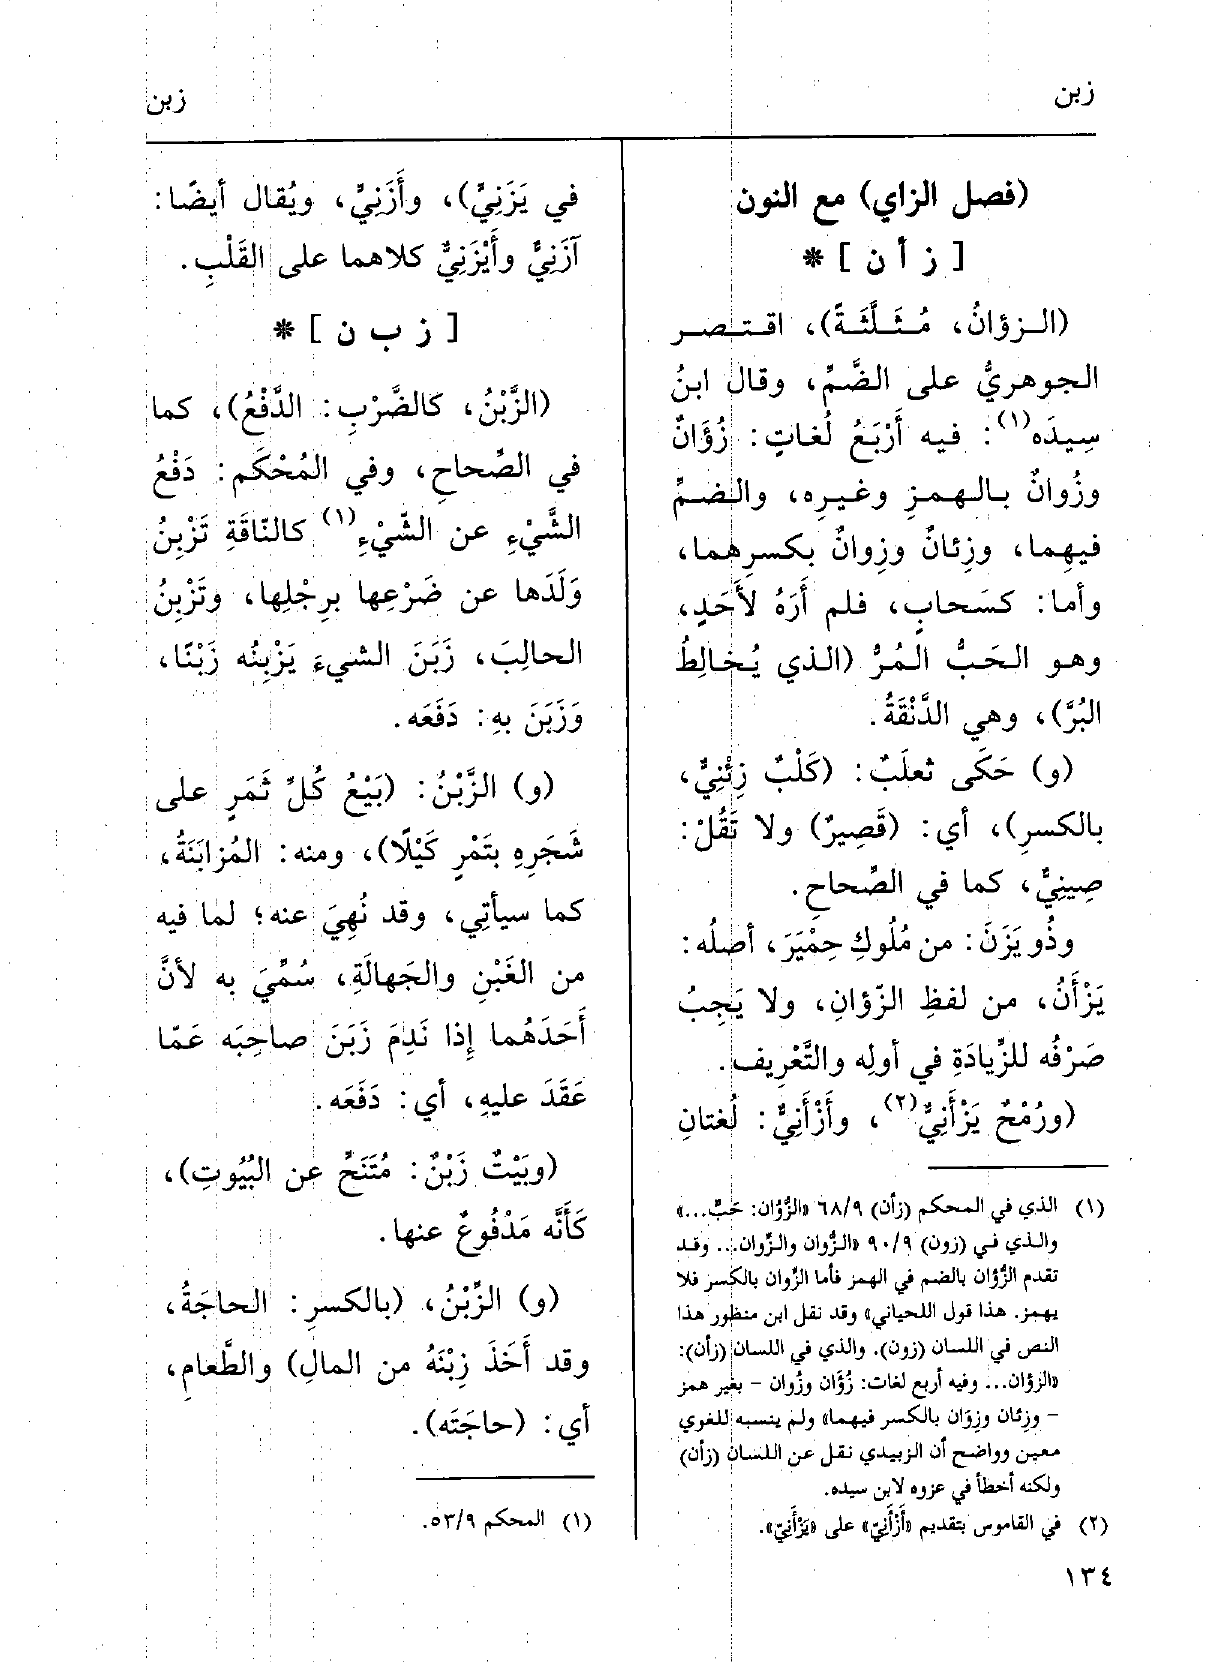 زبن
زبن
(فصل الزاي) مع النون
[ ز أ ن ] *
(الـزؤانُ، مُـثَـلَّثَـةً)، اقـتـصـر
الجوهريُّ على الضَّمِّ، وقال ابنُ
سِيدَه(١): فيه أَرْبَعُ لُغاتٍ: زُؤَانٌ
وزُوانٌ بـالـهـمزِ وغـيـرِه، والـضـمِّ
فيهِما، وزِئانٌ وزِوانٌ بكسرِهما،
وأما: كسَحابٍ، فلم أَرَهُ لأَحَدٍ،
وهـو الـحَـبُّ الـمُـرُّ (الـذي يُـخـالِطُ
البُرَّ)، وهي الدَّنْقَةُ.
(و) حَكَى ثعلَبٌ: (كَلْبٌ زِئْنِيٌّ،
بالكسرِ)، أي: (قَصِيرٌ) ولا تَقُلْ:
صِينِيٌّ، كما في الصِّحاحِ.
وذُو يَزَنَ: من مُلُوكِ حِمْيَرَ، أصلُه:
يَزْأَنُ، من لفظِ الزّؤانِ، ولا يَجِبُ
صَرْفُه للزِّيادَةِ في أولِه والتَّعْرِيفِ.
(ورُمْحٌ يَزْأَنِيٌّ(٢)، وأَزْأَنِيٌّ: لُغتانِ
(١) الذي في المحكم (زأن) ٦٨/٩ «الزُّؤان: حَبٌّ...»
والذي في (زون) ٩٠/٩ «الزُّوان والزِّوان... وقد
تقدم الزُّؤان بالضم في الهمز فأما الزّوان بالكسر فلا
يهمز. هذا قول اللحياني» وقد نقل ابن منظور هذا
النص في اللسان (زون). والذي في اللسان (زأن):
«الزؤان... وفيه أربع لغات: زُؤَان وزُوان - بغير همز
- وزِئان وزِوَان بالكسر فيهما» ولم ينسبه للغوي
معين وواضح أن الزبيدي نقل عن اللسان (زأن)
ولكنه أخطأ في عزوه لابن سيده.
(٢) في القاموس بتقديم «أَزْأَنِيّ» على «يَزْأَنِيّ».
١٣٤
في يَزَنِيٍّ)، وأَزَنِيٍّ، ويُقال أيضًا:
آزَنِيٌّ وأَيْزَنِيٌّ كلاهما على القَلْبِ.
[ ز ب ن ] *
(الزَّبْنُ، كالضَّرْبِ: الدَّفْعُ)، كما
في الصِّحاحِ، وفي المُحْكَم: دَفْعُ
الشَّيْءِ عن الشّيْءِ(١) كالنّاقَةِ تَزْبِنُ
وَلَدَها عن ضَرْعِها برِجْلِها، وتَزْبِنُ
الحالِبَ، زَبَنَ الشيءَ يَزْبِنُه زَبْنًا،
وَزَبَنَ بهِ: دَفَعَه.
(و) الزَّبْنُ: (بَيْعُ كُلِّ ثَمَرٍ على
شَجَرِهِ بتَمْرٍ كَيْلًا)، ومنه: المُزابَنَةُ،
كما سيأتِي، وقد نُهِيَ عنه؛ لما فيه
من الغَبْنِ والجَهالَةِ، سُمِّيَ به لأنَّ
أَحَدَهُما إِذا نَدِمَ زَبَنَ صاحِبَه عَمّا
عَقَدَ عليهِ، أي: دَفَعَه.
(وبَيْتٌ زَبْنٌ: مُتَنَحٍّ عن البُيُوتِ)،
كَأَنَّه مَدْفُوعٌ عنها.
(و) الزِّبْنُ، (بالكسرِ: الحاجَةُ،
وقد أَخَذَ زِبْنَهُ من المالِ) والطَّعامِ،
أي: (حاجَتَه).
(١) المحكم ٥٣/٩.